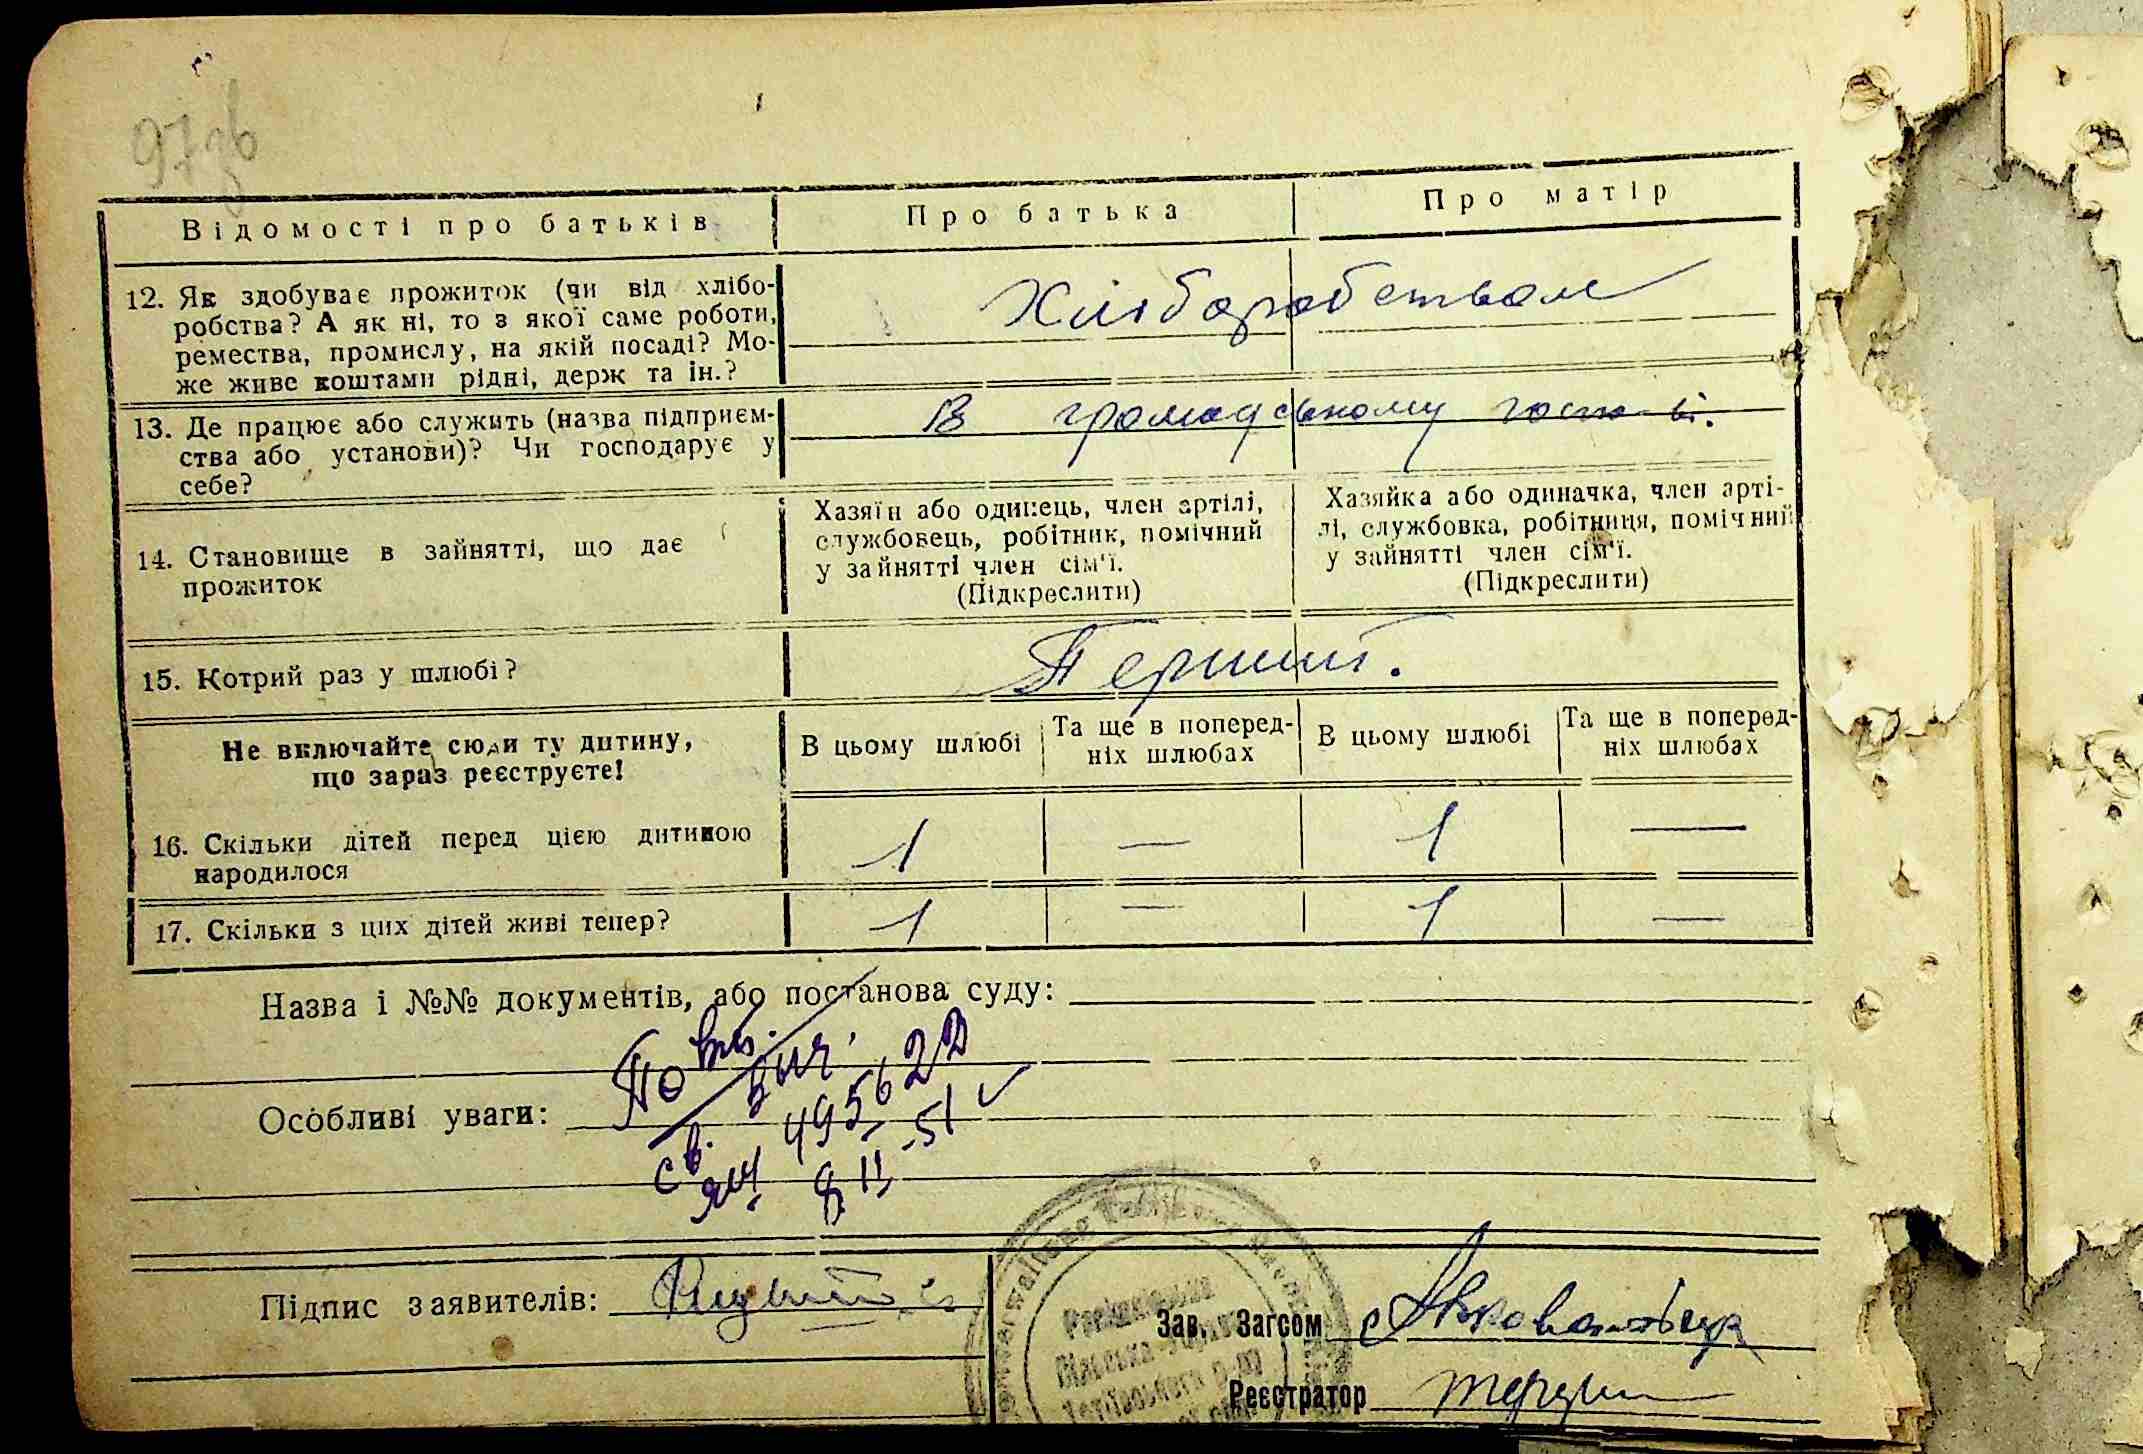 97зв
Відомості про батьків
Про батька
Про матір
12. Як здобуває прожиток (чи від хлібо-
робства? А як ні, то з якої саме роботи,
ремества, промислу, на якій посаді? Мо-
же живе коштами рідні, держ та ін.?
Хліборобством
13. Де працює або служить (назва підприєм-
ства або установи)? Чи господарує у
себе?
В громадському
14. Становище в зайнятті, що дає
прожиток
Хазяїн або одинець, член артілі,
службовець, робітник, помічний
у зайнятті член сім'ї.
(Підкреслити)
Хазяйка або одиначка, член арті-
лі, службовка, робітниця, помічний
у зайнятті член сім'ї.
(Підкреслити)
15. Котрий раз у шлюбі?
Перший.
Не включайте сюди ту дитину,
що зараз реєструєте!
В цьому шлюбі
Та ще в поперед-
ніх шлюбах
В цьому шлюбі
Та ще в поперед-
ніх шлюбах
16. Скільки дітей перед цією дитиною
народилося
1 — 1 —
17. Скільки з цих дітей живі тепер?
1 — 1 —
Назва і №№ документів, або постанова суду:
Особливі уваги:
св. ЯЧ 495622
8 II -51
Підпис заявителів:
Зав. Загсом
Реєстратор